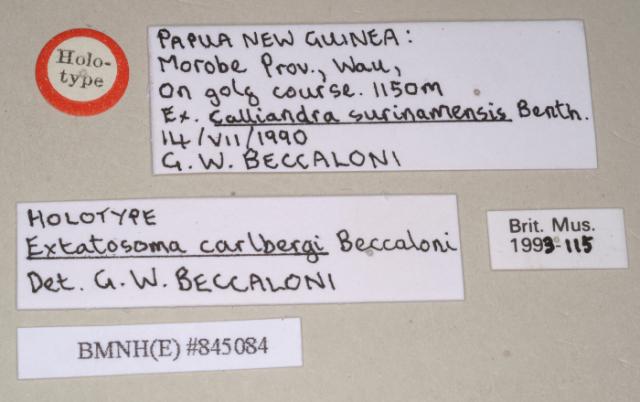 Holo-
type
PAPUA NEW GUINEA:
Morobe Prov., Wau,
On golg course. 1150m
Ex. Calliandra surinamensis Benth.
14/VII/1990
G. W. BECCALONI
HOLOTYPE
Extatosoma carlbergi Beccaloni
Det. G. W. BECCALONI
Brit. Mus.
1993-115
BMNH(E) #845084